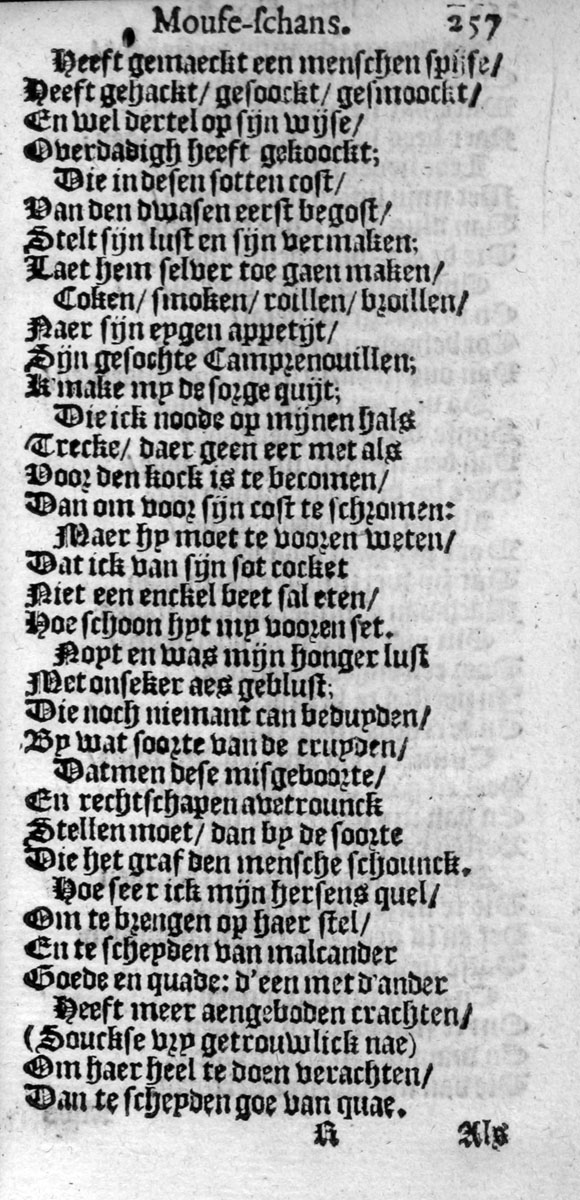 Mouse-schans. 257
Heeft gemaeckt een menschen spijse/
Heeft gehackt/ gesoockt/ gesmoockt/
En wel dertel op sijn wijse/
Overdadigh heeft gekoockt;
Die in desen sotten cost/
Van den dwasen eerst begost/
Stelt sijn lust en sijn vermaken;
Laet hem selver toe gaen maken/
Coken/ smoken/ roillen/ broillen/
Naer sijn eygen appetijt/
Sijn gesochte Camprenouillen;
K'make my de sorge quijt;
Die ick noode op mijnen hals
Trecke/ daer geen eer met als
Voor den kock is te becomen/
Dan om voor sijn cost te schromen:
Maer hy moet te vooren weten/
Dat ick van sijn sot cocket
Niet een enckel beet sal eten/
Hoe schoon hyt my vooren set.
Noyt en was mijn honger lust
Met onseker aes geblust;
Die noch niemant can beduyden/
By wat soorte van de cruyden/
Datmen dese misgeboorte/
En rechtschapen avetrounck
Stellen moet/ dan by de soorte
Die het graf den mensche schounck.
Hoe seer ick mijn hersens quel/
Om te brengen op haer stel/
En te scheyden van malcander
Goede en quade: d'een met d'ander
Heeft meer aengeboden crachten/
(Souckse vry getrouwlick nae)
Om haer heel te doen verachten/
Dan te scheyden goe van quae.
R Als